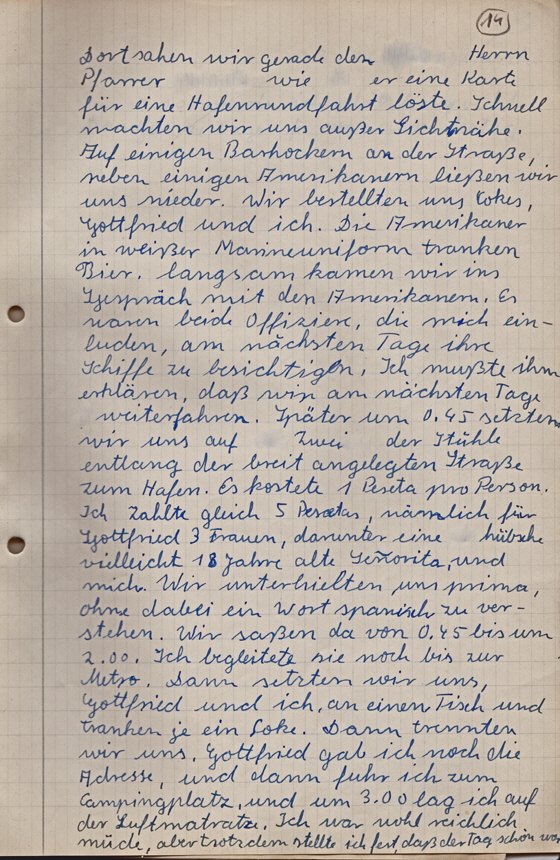 14
Dort sahen wir gerade den Herrn
Pfarrer wie er eine Karte
für eine Hafenrundfahrt löste. Schnell
machten wir uns außer Sichtnähe.
Auf einigen Barhockern an der Straße,
neben einigen Amerikanern ließen wir
uns nieder. Wir bestellten uns Cokes,
Gottfried und ich. Die Amerikaner
in weißer Marineuniform tranken
Bier. langsam kamen wir ins
Gespräch mit den Amerikanern. Es
waren beide Offiziere, die mich ein-
luden, am nächsten Tage ihre
Schiffe zu besichtigen. Ich mußte ihm
erklären, daß wir am nächsten Tage
weiterfahren. Später um 0.45 setzten
wir uns auf zwei der Stühle
entlang der breit angelegten Straße
zum Hafen. Es kostete 1 Peseta pro Person.
Ich zahlte gleich 5 Pesetas, nämlich für
Gottfried 3 Frauen, darunter eine hübsche
vielleicht 18 Jahre alte Señorita, und
mich. Wir unterhielten uns prima,
ohne dabei ein Wort spanisch zu ver-
stehen. Wir saßen da von 0.45 bis um
2.00. Ich begleitete sie noch bis zur
Metro. Dann setzten wir uns,
Gottfried und ich, an einen Tisch und
tranken je ein Coke. Dann trennten
wir uns. Gottfried gab ich noch die
Adresse, und dann fuhr ich zum
Campingplatz, und um 3.00 lag ich auf
der Luftmatratze. Ich war wohl reichlich
müde, aber trotzdem stellte ich fest, daß der Tag schön war